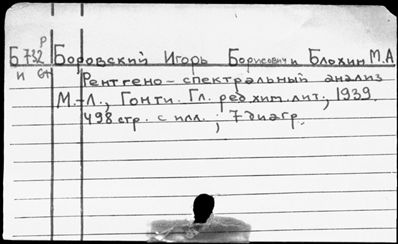 Б 732 Р Боровский Игорь Борисович и Блохин М.А
и Рентгено-спектральный анализ
М.-Л., Гонти. Гл. ред. хим. лит., 1939.
498 стр. с илл.; 7 диагр.